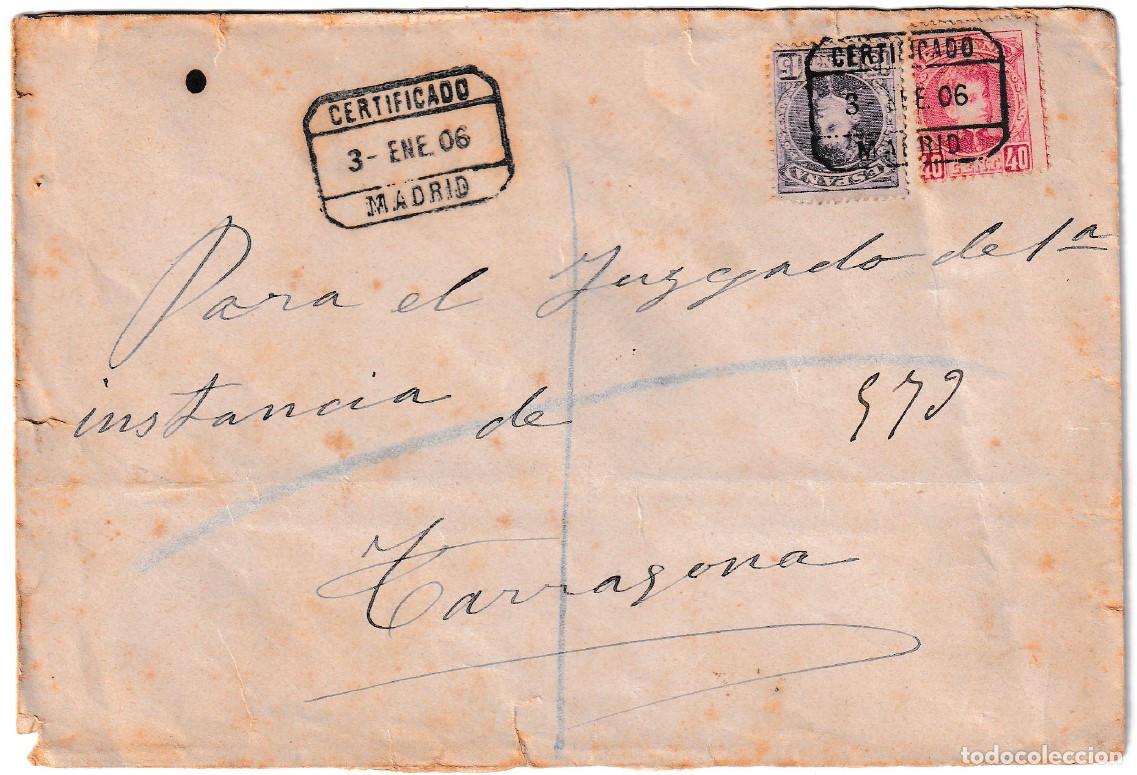 CERTIFICADO
3- ENE. 06
MADRID
CERTIFICADO
3 ENE. 06
MADRID
15
40 CENTS 40
Para el Juzgado de 1ª
instancia de 979
Tarragona
todocoleccion